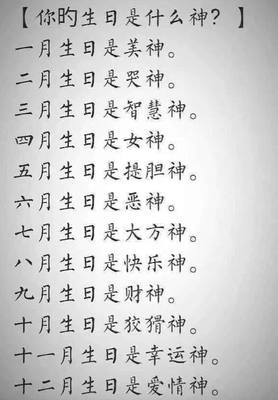 【你旳生日是什么神？】
一月生日是美神。
二月生日是哭神。
三月生日是智慧神。
四月生日是女神。
五月生日是提胆神。
六月生日是恶神。
七月生日是大方神。
八月生日是快乐神。
九月生日是财神。
十月生日是狡猾神。
十一月生日是幸运神。
十二月生日是爱情神。